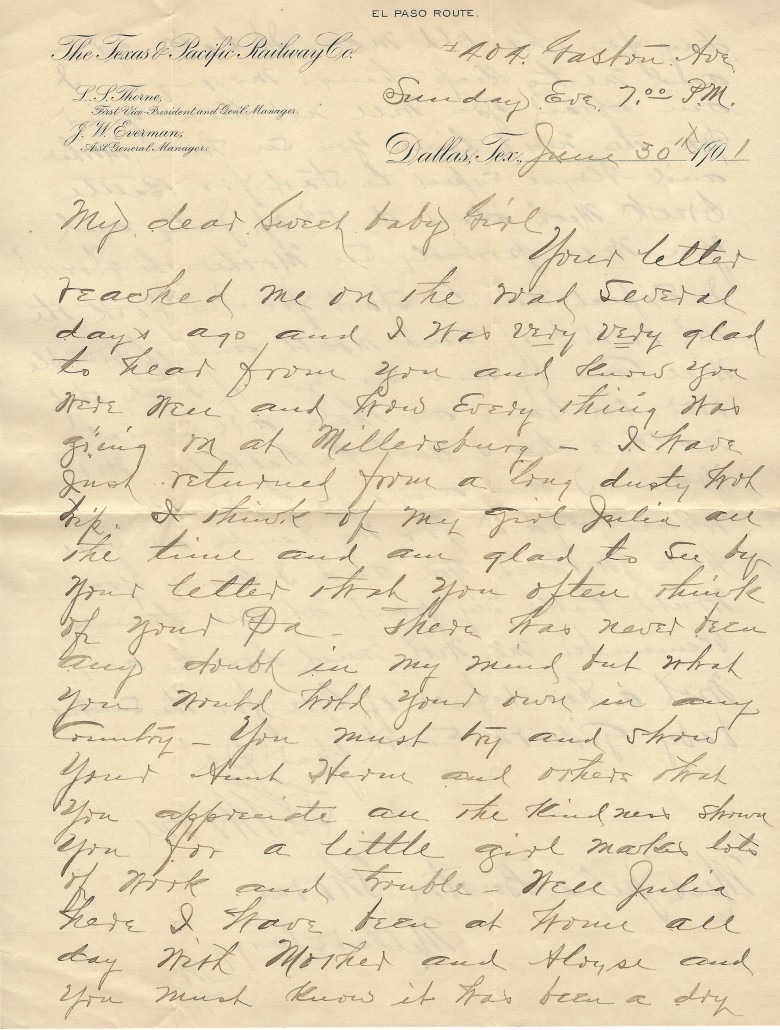 EL PASO ROUTE.
The Texas & Pacific Railway Co.
L. S. Thorne,
First Vice-President and Gen'l Manager.
J. W. Everman,
Ass't General Manager.
#404 Gaston Ave
Sunday Eve. 7.00 P.M.
Dallas, Tex., June 30th 1901
My dear Sweet baby Girl
Your letter
reached me on the road several
days ago and I was very very glad
to hear from you and know you
were well and how every thing was
going on at Millersburg – I have
just returned from a long dusty hot
trip. I think of my girl Julia all
the time and am glad to see by
your letter that you often think
of your Pa – There has never been
any doubt in my mind but what
you would hold your own in any
Country – You must try and show
your Aunt Herm and others that
you appreciate all the kindness shown
you for a little girl makes lots
of work and trouble – Well Julia
here I have been at home all
day with Mother and Aloyse and
you must know it has been a dry